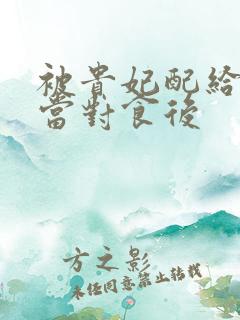 被貴妃配給
當對食後
方之影
未经同意禁止转载